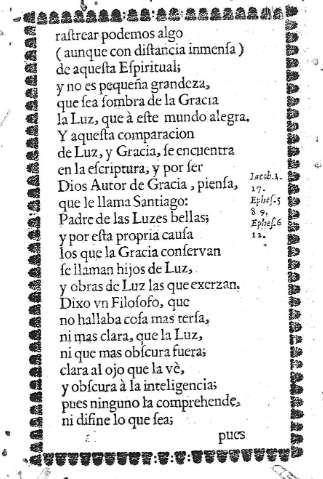 raſtrear podemos algo
(aunque con diſtancia inmenſa)
de aqueſta Eſpiritual;
y no es pequeña grandeza,
que ſea ſombra de la Gracia
la Luz, que à eſte mundo alegra.
Y aqueſta comparacion
de Luz, y Gracia, ſe encuentra
en la eſcriptura, y por ſer
Dios Autor de Gracia, pienſa,
que le llama Santiago:
Padre de las Luzes bellas;
y por eſta propria cauſa
los que la Gracia conſervan
ſe llaman hijos de Luz,
y obras de Luz las que exerzan.
Dixo vn Filoſofo, que
no hallaba coſa mas terſa,
ni mas clara, que la Luz,
ni que mas obſcura fuera;
clara al ojo que la vè,
y obſcura à la inteligencia;
pues ninguno la comprehende,
ni difine lo que ſea;
pues
Iacob. 1.
17.
Epheſ. 5
8 9.
Epheſ. 6
12.